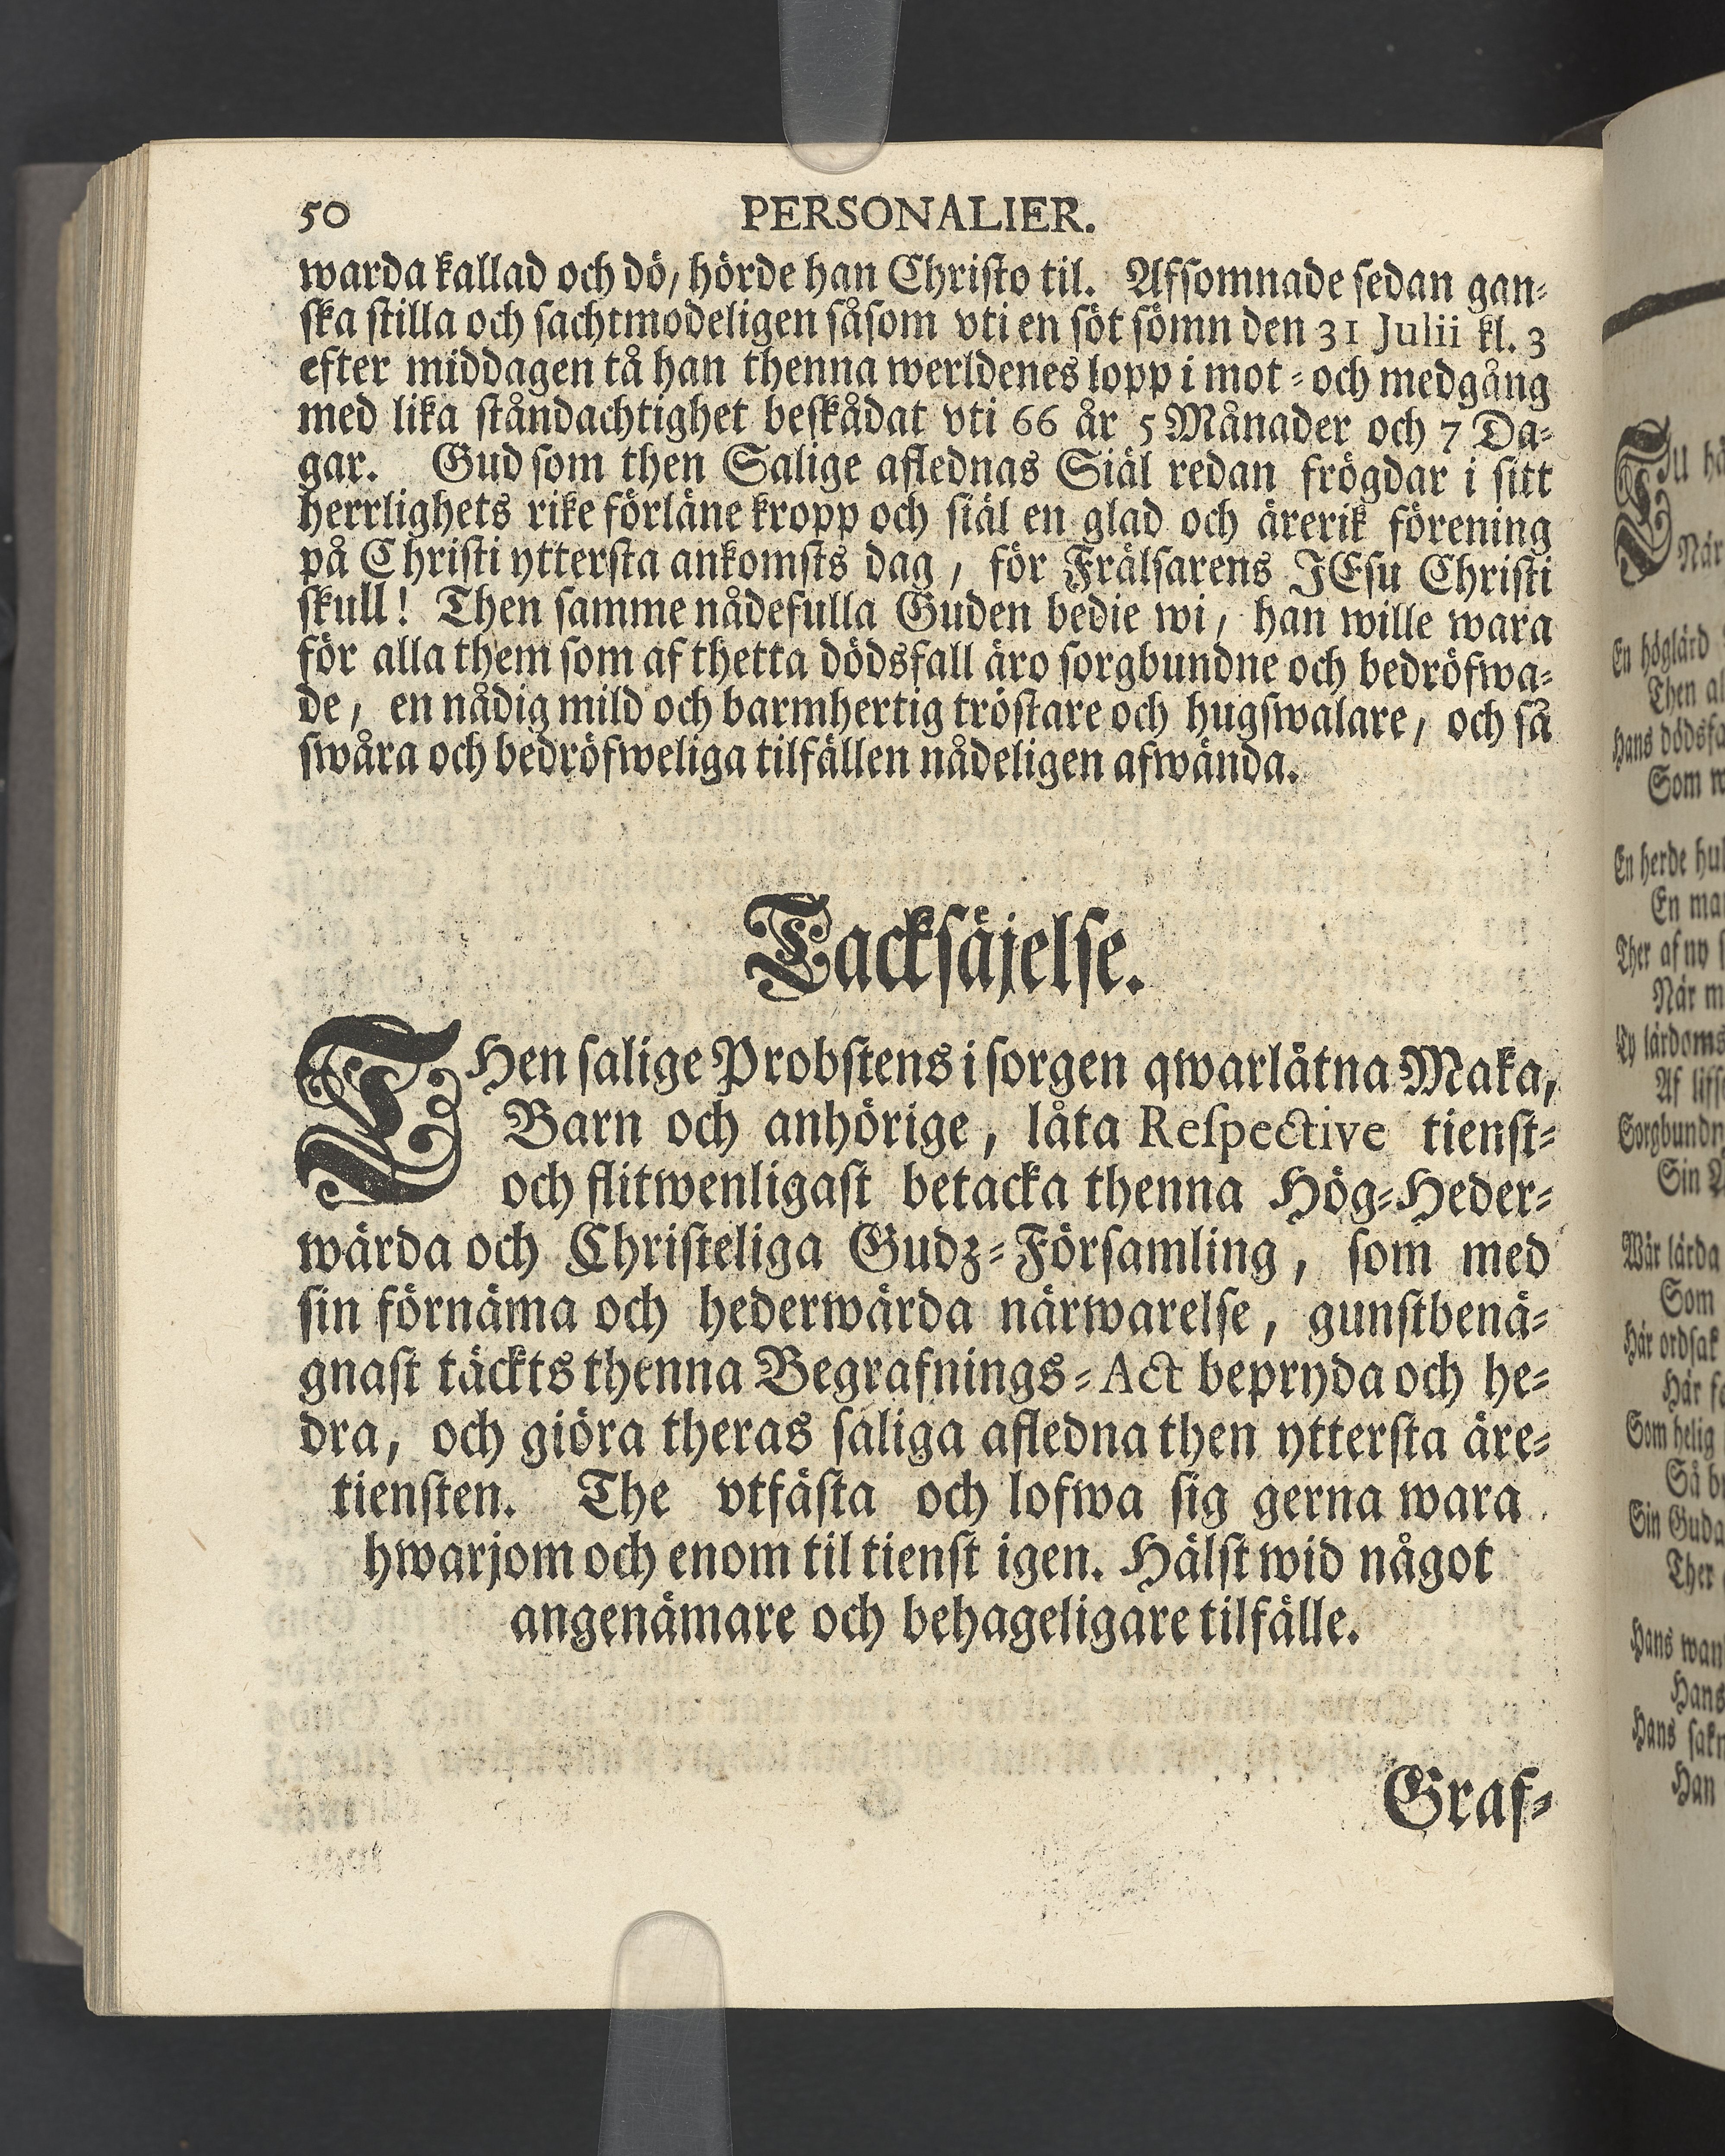 50 PERSONALIER.
warda kallad och dö, hörde han Christo til. Afsomnade sedan gan-
ska stilla och sachtmodeligen såsom vti en söt sömn den 31 Julii kl. 3
efter middagen tå han thenna werldenes lopp i mot- och medgång
med lika ståndachtighet beskådat vti 66 år 5 Månader och 7 Da-
gar. Gud som then Salige aflednas Siäl redan frögdar i sitt
herrlighets rike förläne kropp och siäl en glad och ärerik förening
på Christi yttersta ankomsts dag, för Frälsarens JEsu Christi
skull! Then samme nådefulla Guden bedie wi, han wille wara
för alla them som af thetta dödsfall äro sorgbundne och bedröfwa-
de, en nådig mild och barmhertig tröstare och hugswalare, och så
swåra och bedröfweliga tilfällen nådeligen afwända.
Tacksäjelse.
THen salige Probstens i sorgen qwarlåtna Maka,
Barn och anhörige, låta Respective tienst-
och flitwenligast betacka thenna Hög-Heder-
wärda och Christeliga Gudz-Församling, som med
sin förnäma och hederwärda närwarelse, gunstbenä-
gnast täckts thenna Begrafnings-Act bepryda och he-
dra, och giöra theras saliga afledna then yttersta äre-
tiensten. The vtfästa och lofwa sig gerna wara
hwarjom och enom til tienst igen. Hälst wid något
angenämare och behageligare tilfälle.
Graf-
När
En höglärd
Then
Hans
Som
En herde
En
Ther af ny
När
Ty lärdoms
Af
Sin
Wår lärda
Som
Här ordsak
Här
Som helig
Så
Sin
Ther
Hans
Hans
Hans
Han